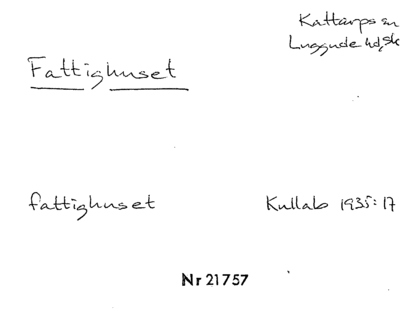 Kattarps sn
Luggude hd, Sk
Fattighuset
fattighuset
Kullabo 1935: 17
Nr 21757